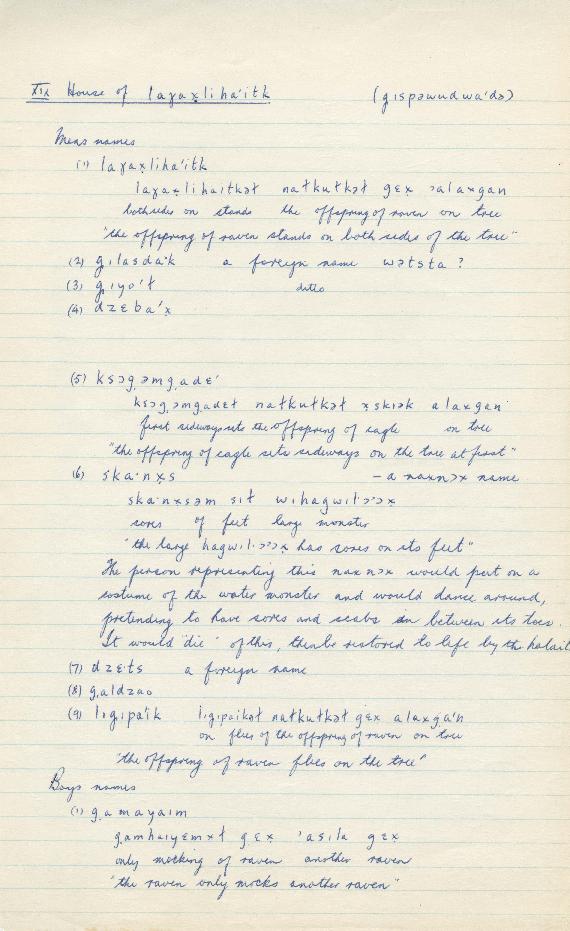 XIX House of laɣax̣liha'itk (gıspəwudwa'də)
Mens names
(1) laɣax̣liha'itk
laɣax̣lihaitkəł nałkutkəł gɛx ɔalax̣gan
both sides on stands the offspring of raven on tree
"the offspring of raven stands on both sides of the tree"
(2) g̣ılasda·'k a foreign name wətsta ?
(3) g̣ıyo·'ł ditto
(4) dzɛba·'x̣
(5) ksɔg̣əmg̣adɛ'
ksɔg̣əmg̣adɛł nałkutkəł x̣skiək alax̣gan
first sideways sits the offspring of eagle on tree
"the offspring of eagle sits sideways on the tree at first"
(6) ska·'nx̣s - a nax̣nɔx name
ska·'nx̣səm sił wıhagwıl·ɔ'ɔx̣
sores of feet large monster
"the large hagwıl·ɔ'ɔx̣ has sores on its feet"
The person representing this nax̣nɔx would put on a
costume of the water monster and would dance around,
pretending to have sores and scabs in between its toes.
It would "die" of this, then be restored to life by the halait
(7) dzɛ·ts a foreign name
(8) g̣aldzao
(9) lıg̣ıpa'ik lıg̣ıpaikəł nałkutkəł gɛx alax̣g̣a'n
on flies of the offspring of raven on tree
"the offspring of raven flies on the tree"
Boys names
(1) g̣amayaım
g̣amhaıyɛmxł g̣ɛx 'asıla gɛx
only mocking of raven another raven
"the raven only mocks another raven"